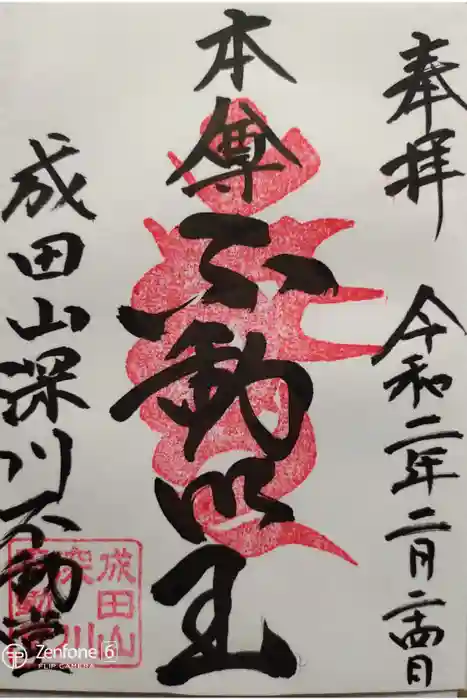 奉拝
令和二年二月二十四日
本尊
不動明王
成田山深川不動堂
成田山
深川
不動堂
Zenfone 6
FLIP CAMERA